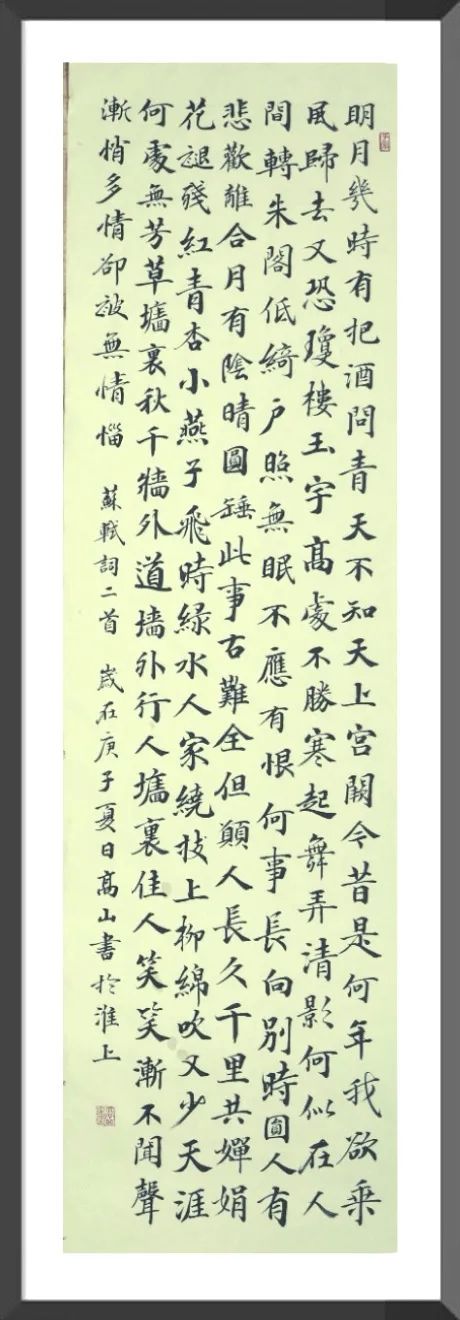 明月幾時有把酒問青天不知天上宮闕今昔是何年我欲乘
風歸去又恐瓊樓玉宇高處不勝寒起舞弄清影何似在人
間轉朱閣低綺户照無眠不應有恨何事長向別時圓人有
悲歡離合月有陰晴圓缺此事古難全但願人長久千里共嬋娟
花褪殘紅青杏小燕子飛時緑水人家繞枝上柳綿吹又少天涯
何處無芳草墻裏秋千牆外道墙外行人墻裏佳人笑笑漸不聞聲
漸悄多情卻被無情惱 蘇軾詞二首 歲在庚子夏日高山書於淮上